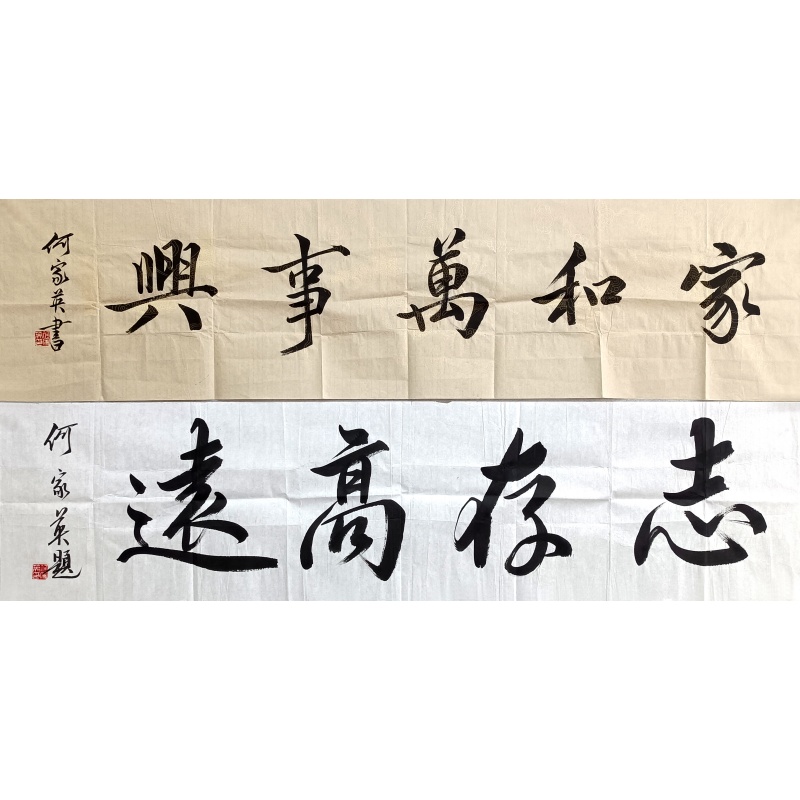 家和萬事興
何家英書
志存高遠
何家英題